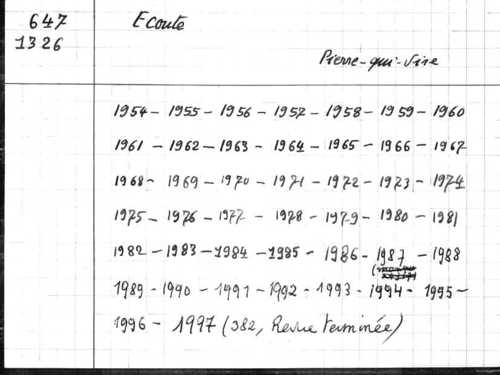 647 Ecoute
1326
Pierre-qui-Vire
1954 - 1955 - 1956 - 1957 - 1958 - 1959 - 1960
1961 - 1962 - 1963 - 1964 - 1965 - 1966 - 1967
1968 - 1969 - 1970 - 1971 - 1972 - 1973 - 1974
1975 - 1976 - 1977 - 1978 - 1979 - 1980 - 1981
1982 - 1983 - 1984 - 1985 - 1986 - 1987 - 1988
1989 - 1990 - 1991 - 1992 - 1993 - 1994 - 1995 -
1996 - 1997 (382, Revue terminée)